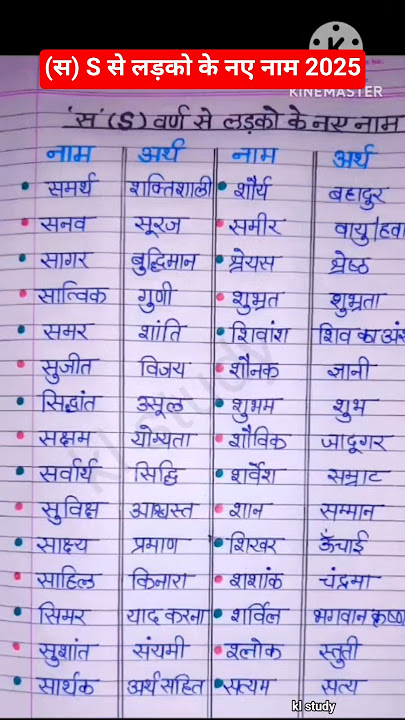 (स) S से लड़को के नए नाम 2025
KINEMASTER
'स' (S) वर्ण से लड़को के नए नाम
नाम अर्थ नाम अर्थ
समर्थ शक्तिशाली शौर्य बहादुर
सनव सूरज समीर वायु/हवा
सागर बुद्धिमान श्रेयस श्रेष्ठ
सात्विक गुणी शुभ्रत शुभ्रता
समर शांति शिवांश शिव का अंश
सुजीत विजय शौनक ज्ञानी
सिद्धांत उसूल शुभम शुभ
सक्षम योग्यता शौविक जादूगर
सर्वार्य सिद्धि शर्वेश सम्राट
सुविक्ष आश्वस्त शान सम्मान
साक्ष्य प्रमाण शिखर ऊँचाई
साहिल किनारा शशांक चंद्रमा
सिमर याद करना शर्विल भगवान कृष्ण
सुशांत संयमी श्लोक स्तुती
सार्थक अर्थ सहित सत्यम सत्य
kl study
kl study